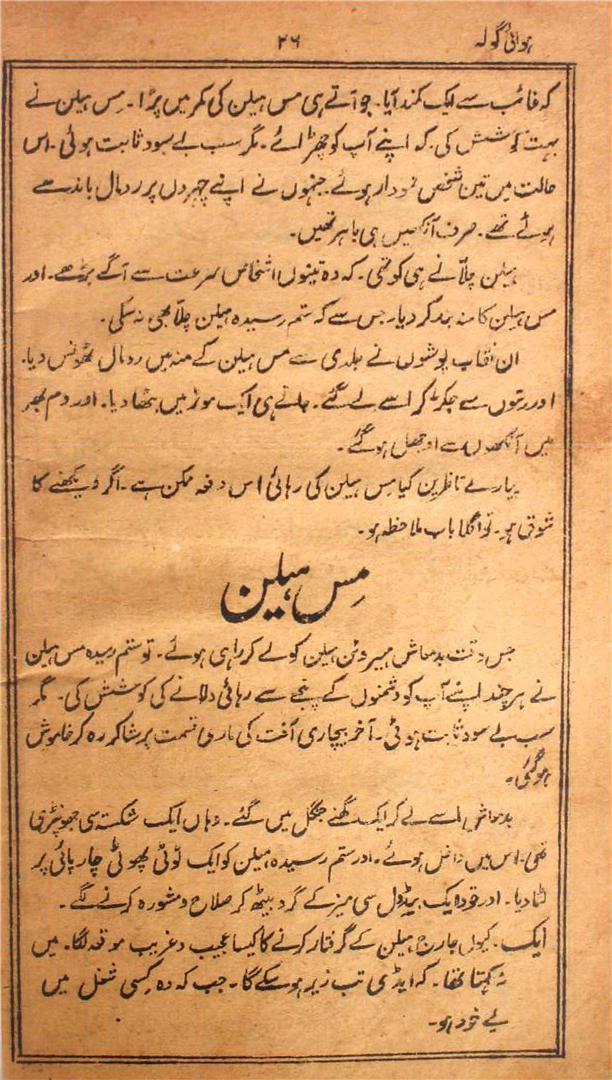 ہوائی گولہ ۲۶
کہ غائب سے ایک کمند آیا۔ جو آتے ہی مس ہیلن کی کمر میں پڑا۔ مِس ہیلن نے
بہت کوشش کی۔ کہ اپنے آپ کو چھڑائے۔ مگر سب بے سود ثابت ہوئی۔ اس
حالت میں تین شخص نمودار ہوئے۔ جنہوں نے اپنے چہروں پر رومال باندھے
ہوئے تھے۔ صرف آنکھیں ہی باہر تھیں۔
ہیلن چلّانے ہی کو تھی۔ کہ وہ تینوں اشخاص سرعت سے آگے بڑھے۔ اور
مس ہیلن کا منہ بند کر دیا۔ جس سے کہ ستم رسیدہ ہیلن چلّا بھی نہ سکی۔
ان نقاب پوشوں نے جلدی سے مس ہیلن کے منہ میں رومال ٹھونس دیا۔
اور رسّوں سے جکڑ کر اسے لے گئے۔ جاتے ہی ایک موٹر میں بٹھا دیا۔ اور دم بھر
میں آنکھوں سے اوجھل ہو گئے۔
پیارے ناظرین کیا مِس ہیلن کی رہائی اس دفعہ ممکن ہے۔ اگر دیکھنے کا
شوق ہو۔ تو اگلا باب ملاحظہ ہو۔
مِس ہیلن
جس وقت بدمعاش ہیروئن ہیلن کو لے کر راہی ہوئے۔ تو ستم رسیدہ مس ہیلن
نے ہر چند اپنے آپ کو دشمنوں کے پنجے سے رہائی دلانے کی کوشش کی۔ مگر
سب بے سود ثابت ہوئی۔ آخر بیچاری آفت کی ماری قسمت پر شاکر رہ کر خاموش
ہو گئی۔
بدمعاش اسے لے کر ایک گھنے جنگل میں گئے۔ وہاں ایک شکستہ سی جھونپڑی
تھی۔ اس میں داخل ہوئے۔ اور ستم رسیدہ ہیلن کو ایک ٹوٹی پھوٹی چارپائی پر
لٹا دیا۔ اور خود ایک بیڈول سی میز کے گرد بیٹھ کر صلاح و مشورہ کرنے لگے۔
ایک۔ کیوں جارج ہیلن کے گرفتار کرنے کا کیسا عجیب و غریب موقعہ لگا۔ میں
نہ کہتا تھا۔ کہ ایڈی تب زیر ہو سکے گا۔ جب کہ وہ کِسی شغل میں
بے خود ہو۔